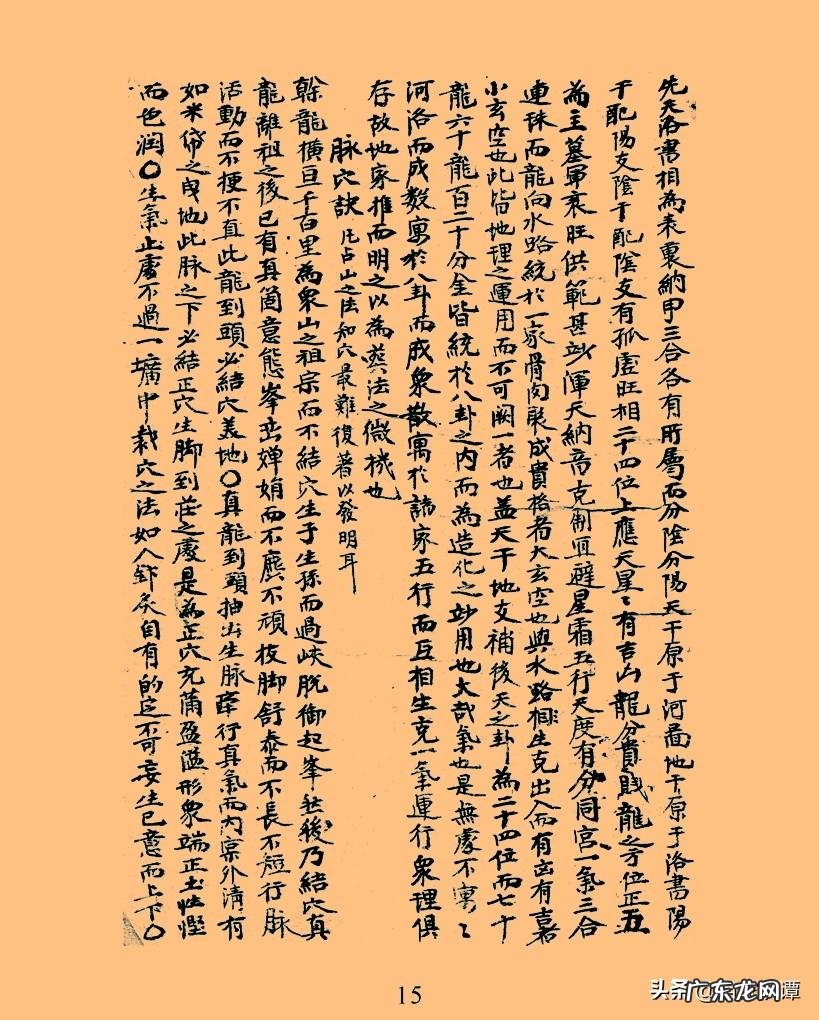 先天洛書相為表裏納甲三合各有所屬而分陰分陽天干原于河圖地干原于洛書陽
干配陽支陰干配陰支有孤虛旺相二十四位上應天星〻有吉凶龍分貴賤龍之才位正五
為主墓軍衰旺供範甚妙渾天納音克制宜避星霜五行天度有分同宮一氣三合
連珠而龍向水路統於一家骨肉聚成貴格者大玄空也與水路相生克出入而有凶有吉者
小玄空也此皆地理之運用而不可闕一者也盖天干地支補後天之卦為二十四位而七十
龍六十龍百二十分金皆統於八卦之内而為造化之妙用也大哉氣也是無處不寓〻
河洛而成数寓於八卦而成衆散寓於諸家五行而互相生克一氣運行衆理俱
存故地家推而明之以為葬法之微機也
脉穴訣 凡占山之法知穴最難復著以發明耳
幹龍横亘千百里為衆山之祖宗而不結穴生子生孫而過峽脱御起峯然後乃結穴真
龍離祖之後已有真箇意態峯巒嬋娟而不麄不頑枝脚舒泰而不長不短行脉
活動而不梗不直此龍到頭必結穴美地〇真龍到頭抽出生脉牽行真氣而内案外清有
如米帒之曳地此脉之下必結正穴生脚到莊之處是為正穴充滿盈溢形衆端正土性慳
而色潤〇生氣止處不過一壙中裁穴之法如人針灸自有的定不可妄生已意而上下〇
15
头条@广东龙网潭